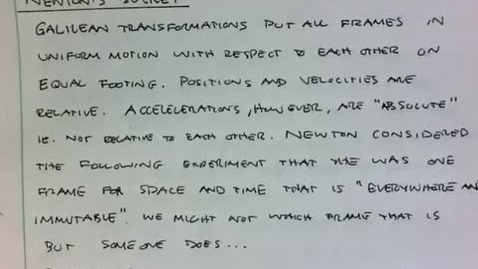 NEWTON'S BUCKET
GALILEAN TRANSFORMATIONS PUT ALL FRAMES IN
UNIFORM MOTION WITH RESPECT TO EACH OTHER ON
EQUAL FOOTING. POSITIONS AND VELOCITIES ARE
RELATIVE. ACCELELERATIONS, HOWEVER, ARE "ABSOLUTE"
IE. NOT RELATIVE TO EACH OTHER. NEWTON CONSIDERED
THE FOLLOWING EXPERIMENT THAT THE WAS ONE
FRAME FOR SPACE AND TIME THAT IS "EVERYWHERE AN
IMMUTABLE". WE MIGHT NOT WHICH FRAME THAT IS
BUT SOMEONE DOES...